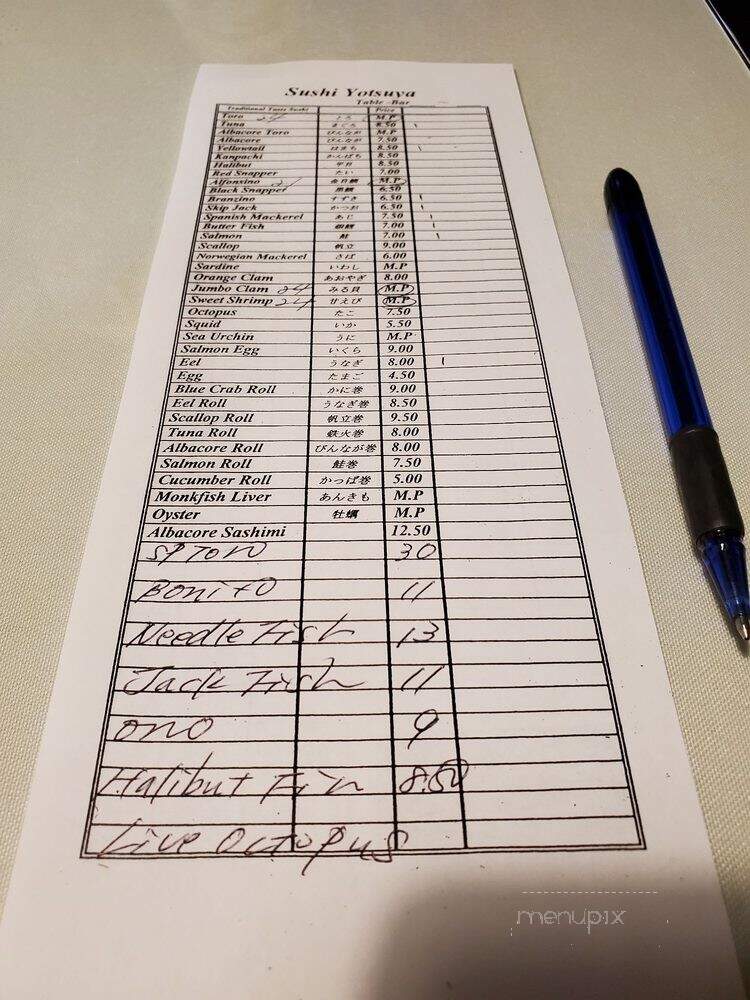 Sushi Yotsuya
Table -Bar
Traditional Taste Sushi Price
Toro 24 とろ M.P
Tuna まぐろ 8.50
Albacore Toro びんなが M.P
Albacore びんなが 7.50
Yellowtail はまち 8.50
Kanpachi かんぱち 8.50
Halibut 平目 8.50
Red Snapper たい 7.00
Alfonsino 金目鯛 M.P
Black Snapper 黒鯛 6.50
Branzino すずき 6.50
Skip Jack かつお 6.50
Spanish Mackerel あじ 7.50
Butter Fish 銀鱈 7.00
Salmon 鮭 7.00
Scallop 帆立 9.00
Norwegian Mackerel さば 6.00
Sardine いわし M.P
Orange Clam あおやぎ 8.00
Jumbo Clam 24 みる貝 M.P
Sweet Shrimp 24 甘えび M.P
Octopus たこ 7.50
Squid いか 5.50
Sea Urchin うに M.P
Salmon Egg いくら 9.00
Eel うなぎ 8.00
Egg たまご 4.50
Blue Crab Roll かに巻 9.00
Eel Roll うなぎ巻 8.50
Scallop Roll 帆立巻 9.50
Tuna Roll 鉄火巻 8.00
Albacore Roll びんなが巻 8.00
Salmon Roll 鮭巻 7.50
Cucumber Roll かっぱ巻 5.00
Monkfish Liver あんきも M.P
Oyster 牡蠣 M.P
Albacore Sashimi 12.50
SP Toro 30
Bonito 11
Needle Fish 13
Jack Fish 11
ono 9
Halibut Fin 8.50
Live Octopus
menupix